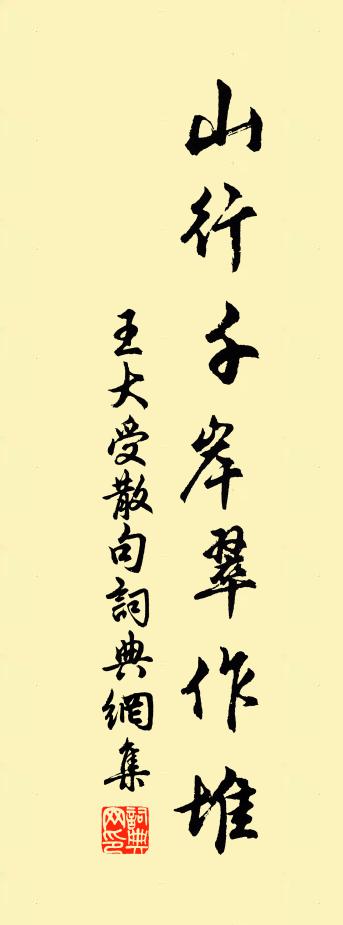 山行千岸翠作堆
王大受散句詞典網集
詞典
网印